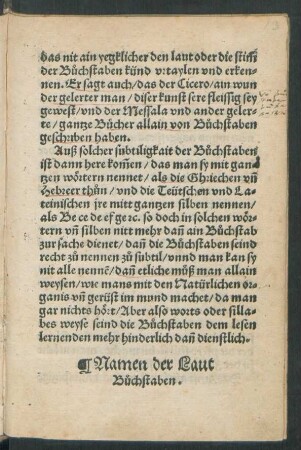 das nit ain yegklicher den laut oder die stim̄
der Bůchstaben künd v̇rtaylen vnd erken-
nen. Er sagt auch/ das der Cicero/ ain wun
der gelerter man/ diser kunst sere fleissig sey
gewest/ vnd der Messala vnd ander geler-
te/ gantze Bücher allain von Bůchstaben
geschriben haben.
Auß solcher subtiligkait der Bůchstaben
ist dann here kom̄en/ das man sy mit gan-
tzen wörtern nennet/ als die Ghriechen vn̄
Hebreer thůn/ vnd die Teütschen vnd La-
teinischen jre mitt gantzen silben nennen/
als Be ce de ef ge ꝛc. so doch in solchen wör-
tern vn̄ silben nitt mehr dan̄ ain Bůchstab
zur sache dienet/ dan̄ die Bůchstaben seind
recht zů nennen zů subtil/ vnnd man kan sy
nit alle nennē/ dan̄ etliche můß man allain
weysen/ wie mans mit den Natürlichen or-
ganis vn̄ gerüst im mund machet/ da man
gar nichts hört/ Aber also worts oder silla-
bes weyse seind die Bůchstaben dem lesen
lernenden mehr hinderlich dan̄ dienstlich.
¶ Namen der Laut
Bůchstaben.